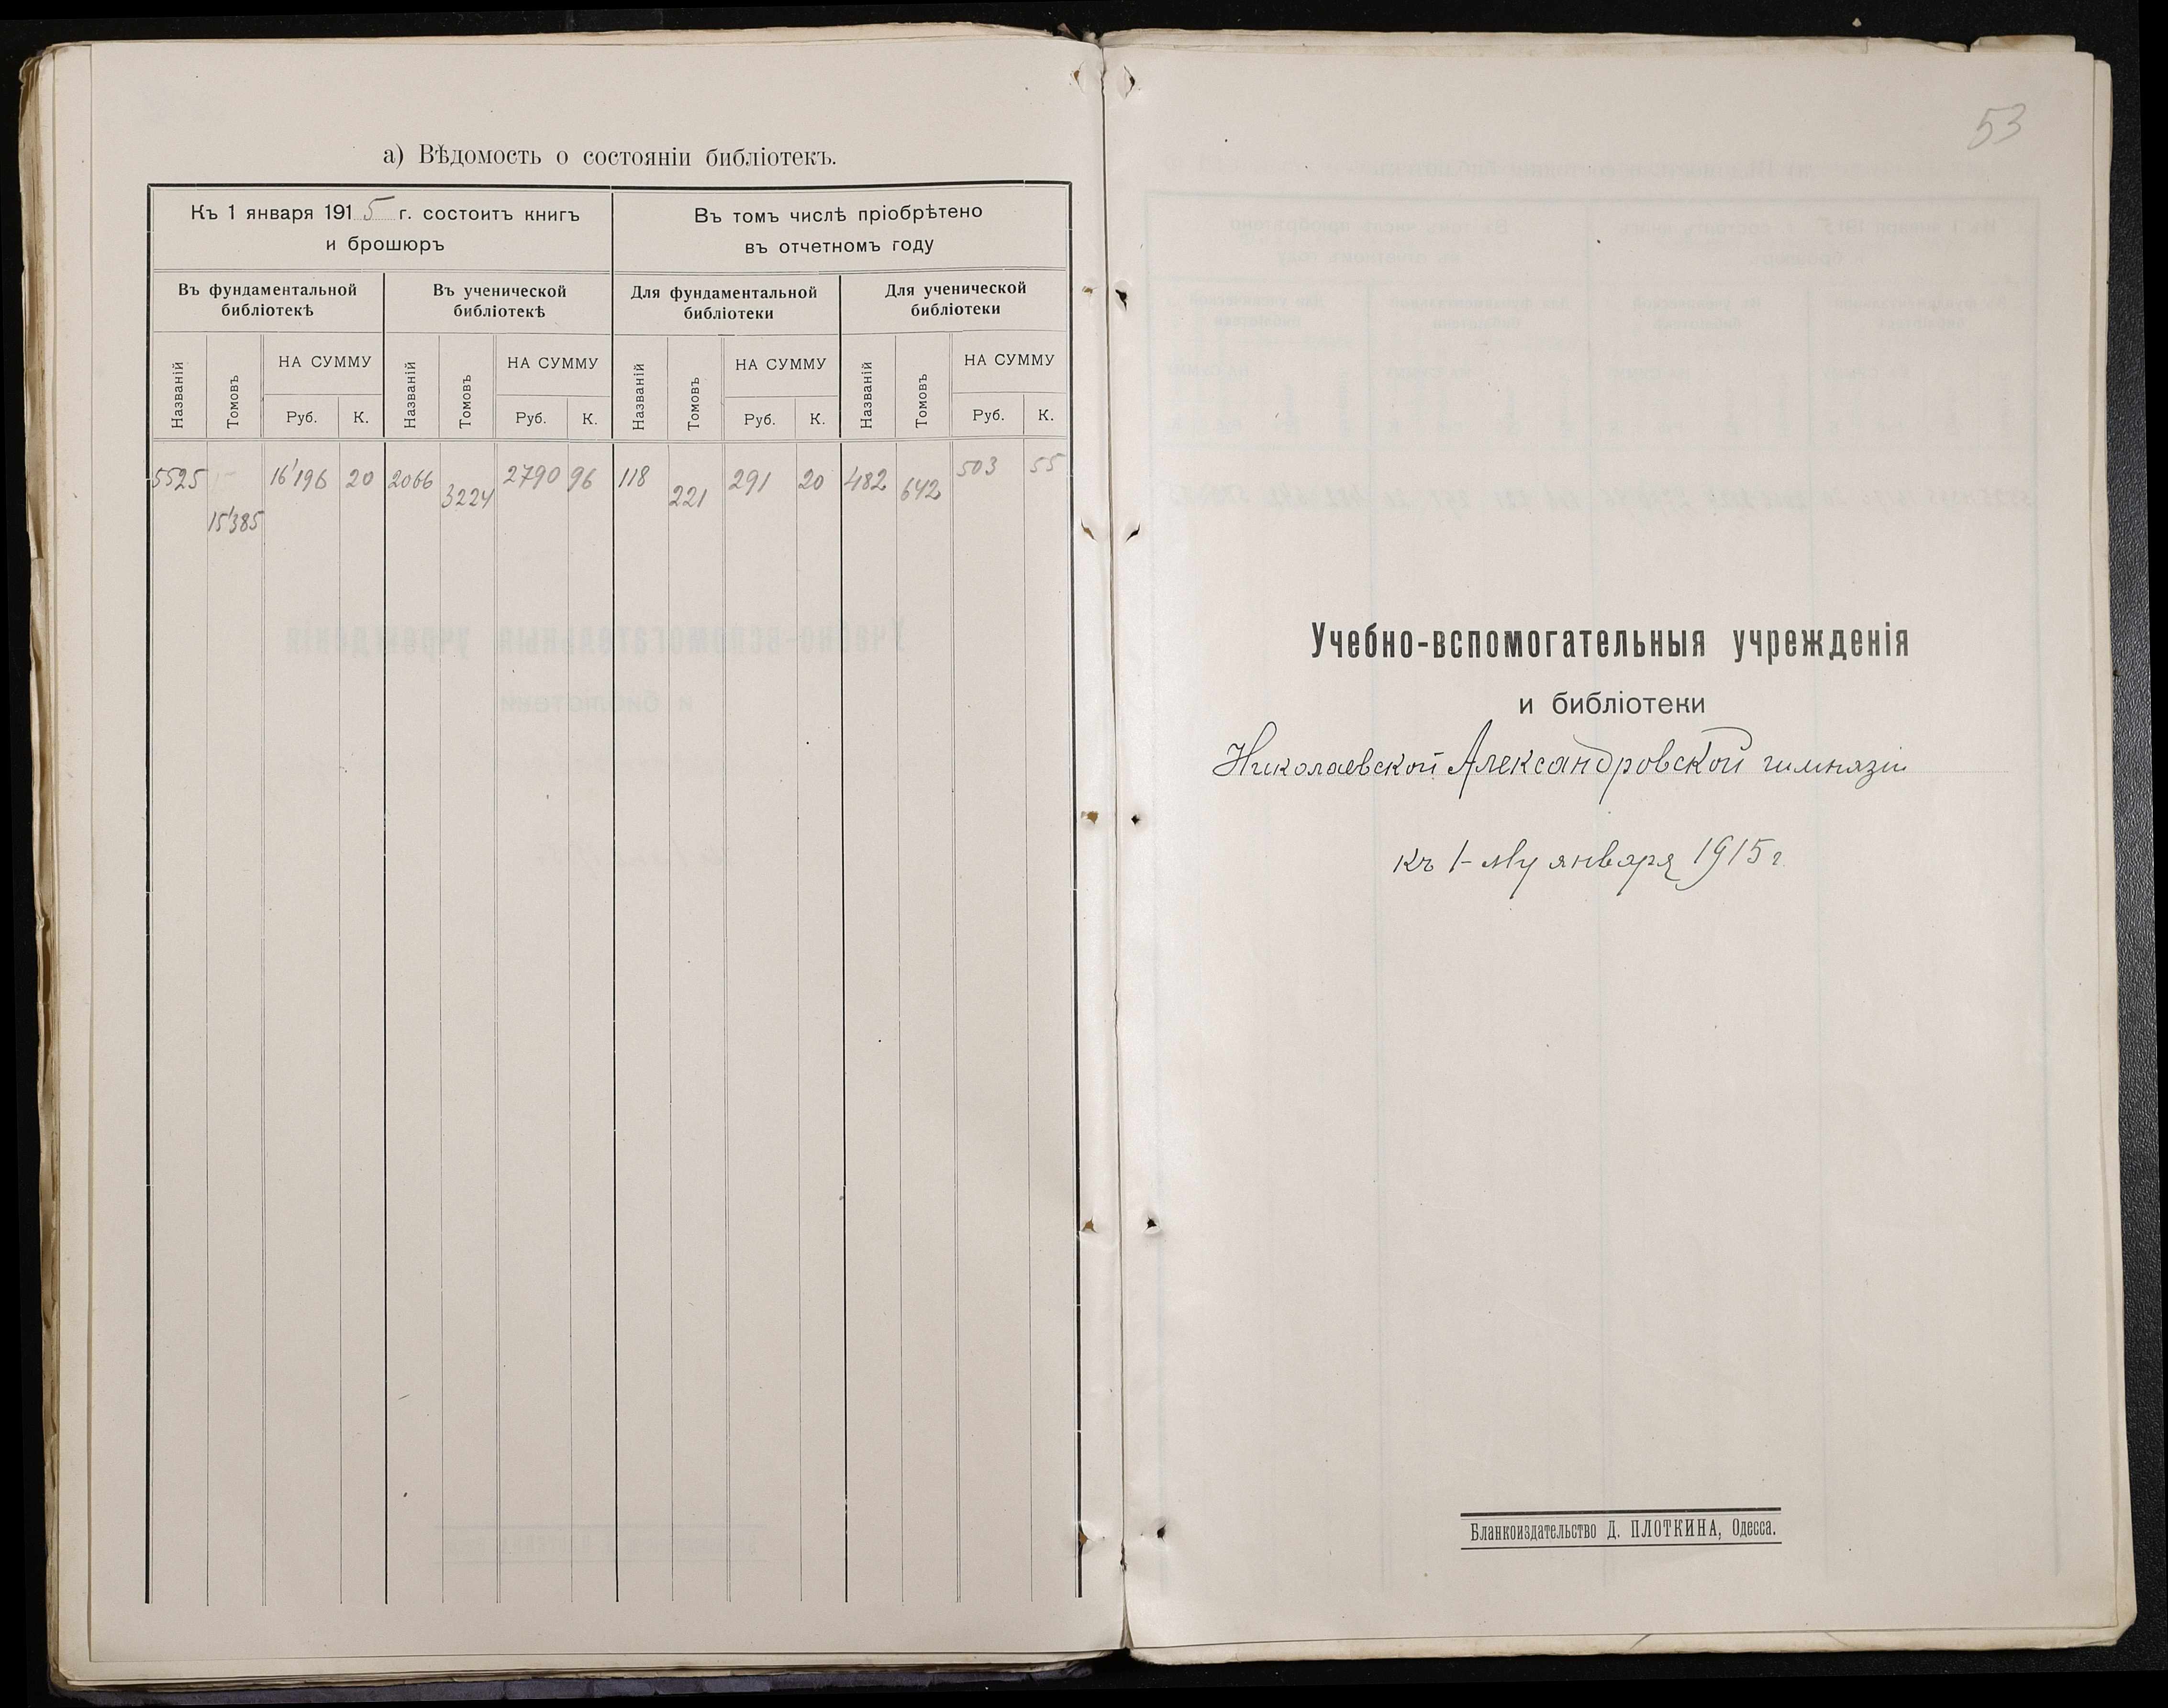 а) Вѣдомость о состояніи библіотекъ.
Къ 1 января 1915 г. состоитъ книгъ
и брошюръ
Въ томъ числѣ пріобрѣтено
въ отчетномъ году
Въ фундаментальной
библіотекѣ
Въ ученической
библіотекѣ
Для фундаментальной
библіотеки
Для ученической
библіотеки
Названій Томовъ НА СУММУ Руб. К. Названій Томовъ НА СУММУ Руб. К. Названій Томовъ НА СУММУ Руб. К. Названій Томовъ НА СУММУ Руб. К.
5525 15'385 16'196 20 2066 3224 2790 96 118 221 291 20 482 642 503 55
53
Учебно-вспомогательныя учрежденія
и библіотеки
Николаевской Александровской гимназіи
къ 1-му января 1915 г.
Бланкоиздательство Д. ПЛОТКИНА, Одесса.